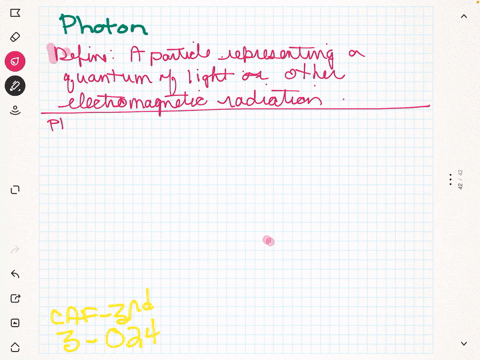 Photon
Define: A particle representing a
quantum of light or other
electromagnetic radiation.
Pl
CAF-3rd
3-024
42 / 42